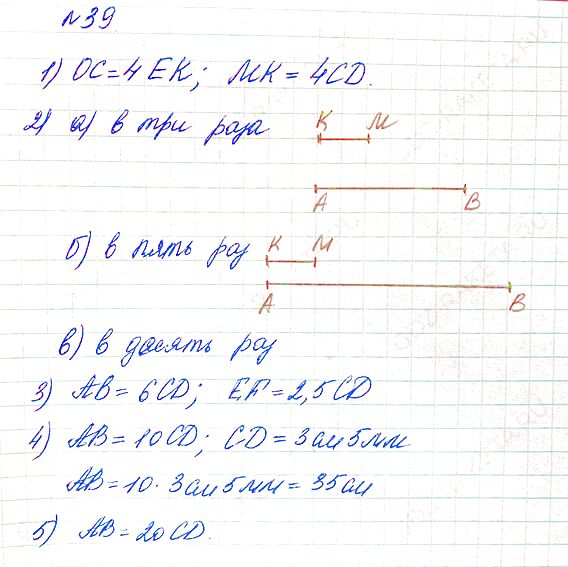 №39
1) OC=4EK; MK=4CD.
2) а) в три раза
K M
A B
б) в пять раз
K M
A B
в) в десять раз
3) AB=6CD; EF=2,5CD
4) AB=10CD; CD=3см5мм
AB=10·3см5мм=35см
5) AB=20CD.